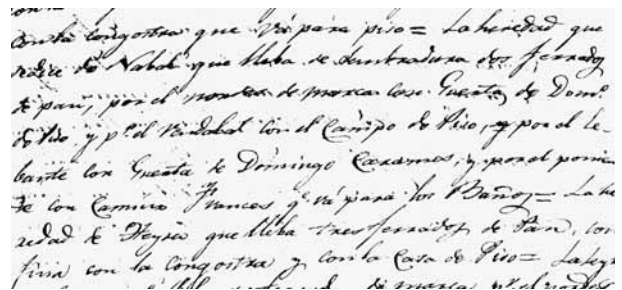 con la congostra que vá para piso = La heredad que
sedice do Nabal que lleba de sembradura dos ferrados
de pan, por el nordes de marca case Guerta de Dom.º
do Piso y p.r el Vendabal con el Campo do Piso, y por el le-
bante con Guerta de Domingo Carames, y por el ponien
te con Camino Frances q.e vá para los Baños = La he
redad de que lleba tres ferrados de Pan, con
fina con la Congostra y con la Casa do Piso =
de marca p.r el nordes